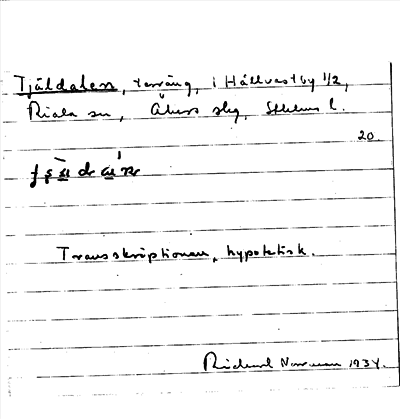 Tjäldalen, terräng, i Hällvastby 1/2,
Riala sn, Åkers skg, Sthlms l.
20
Transskriptionen hypotetisk.
Rickard Norrman 1934.